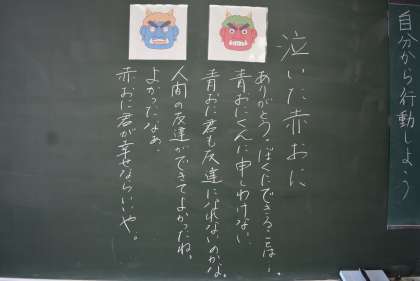 自分から行動しよう
泣いた赤おに
ありがとう。ぼくにできることは…。
青おにくんに申しわけない。
青おに君も友達になれないのかな。
人間の友達ができてよかったね。
よかったなあ。
赤おに君が幸せならいいや。